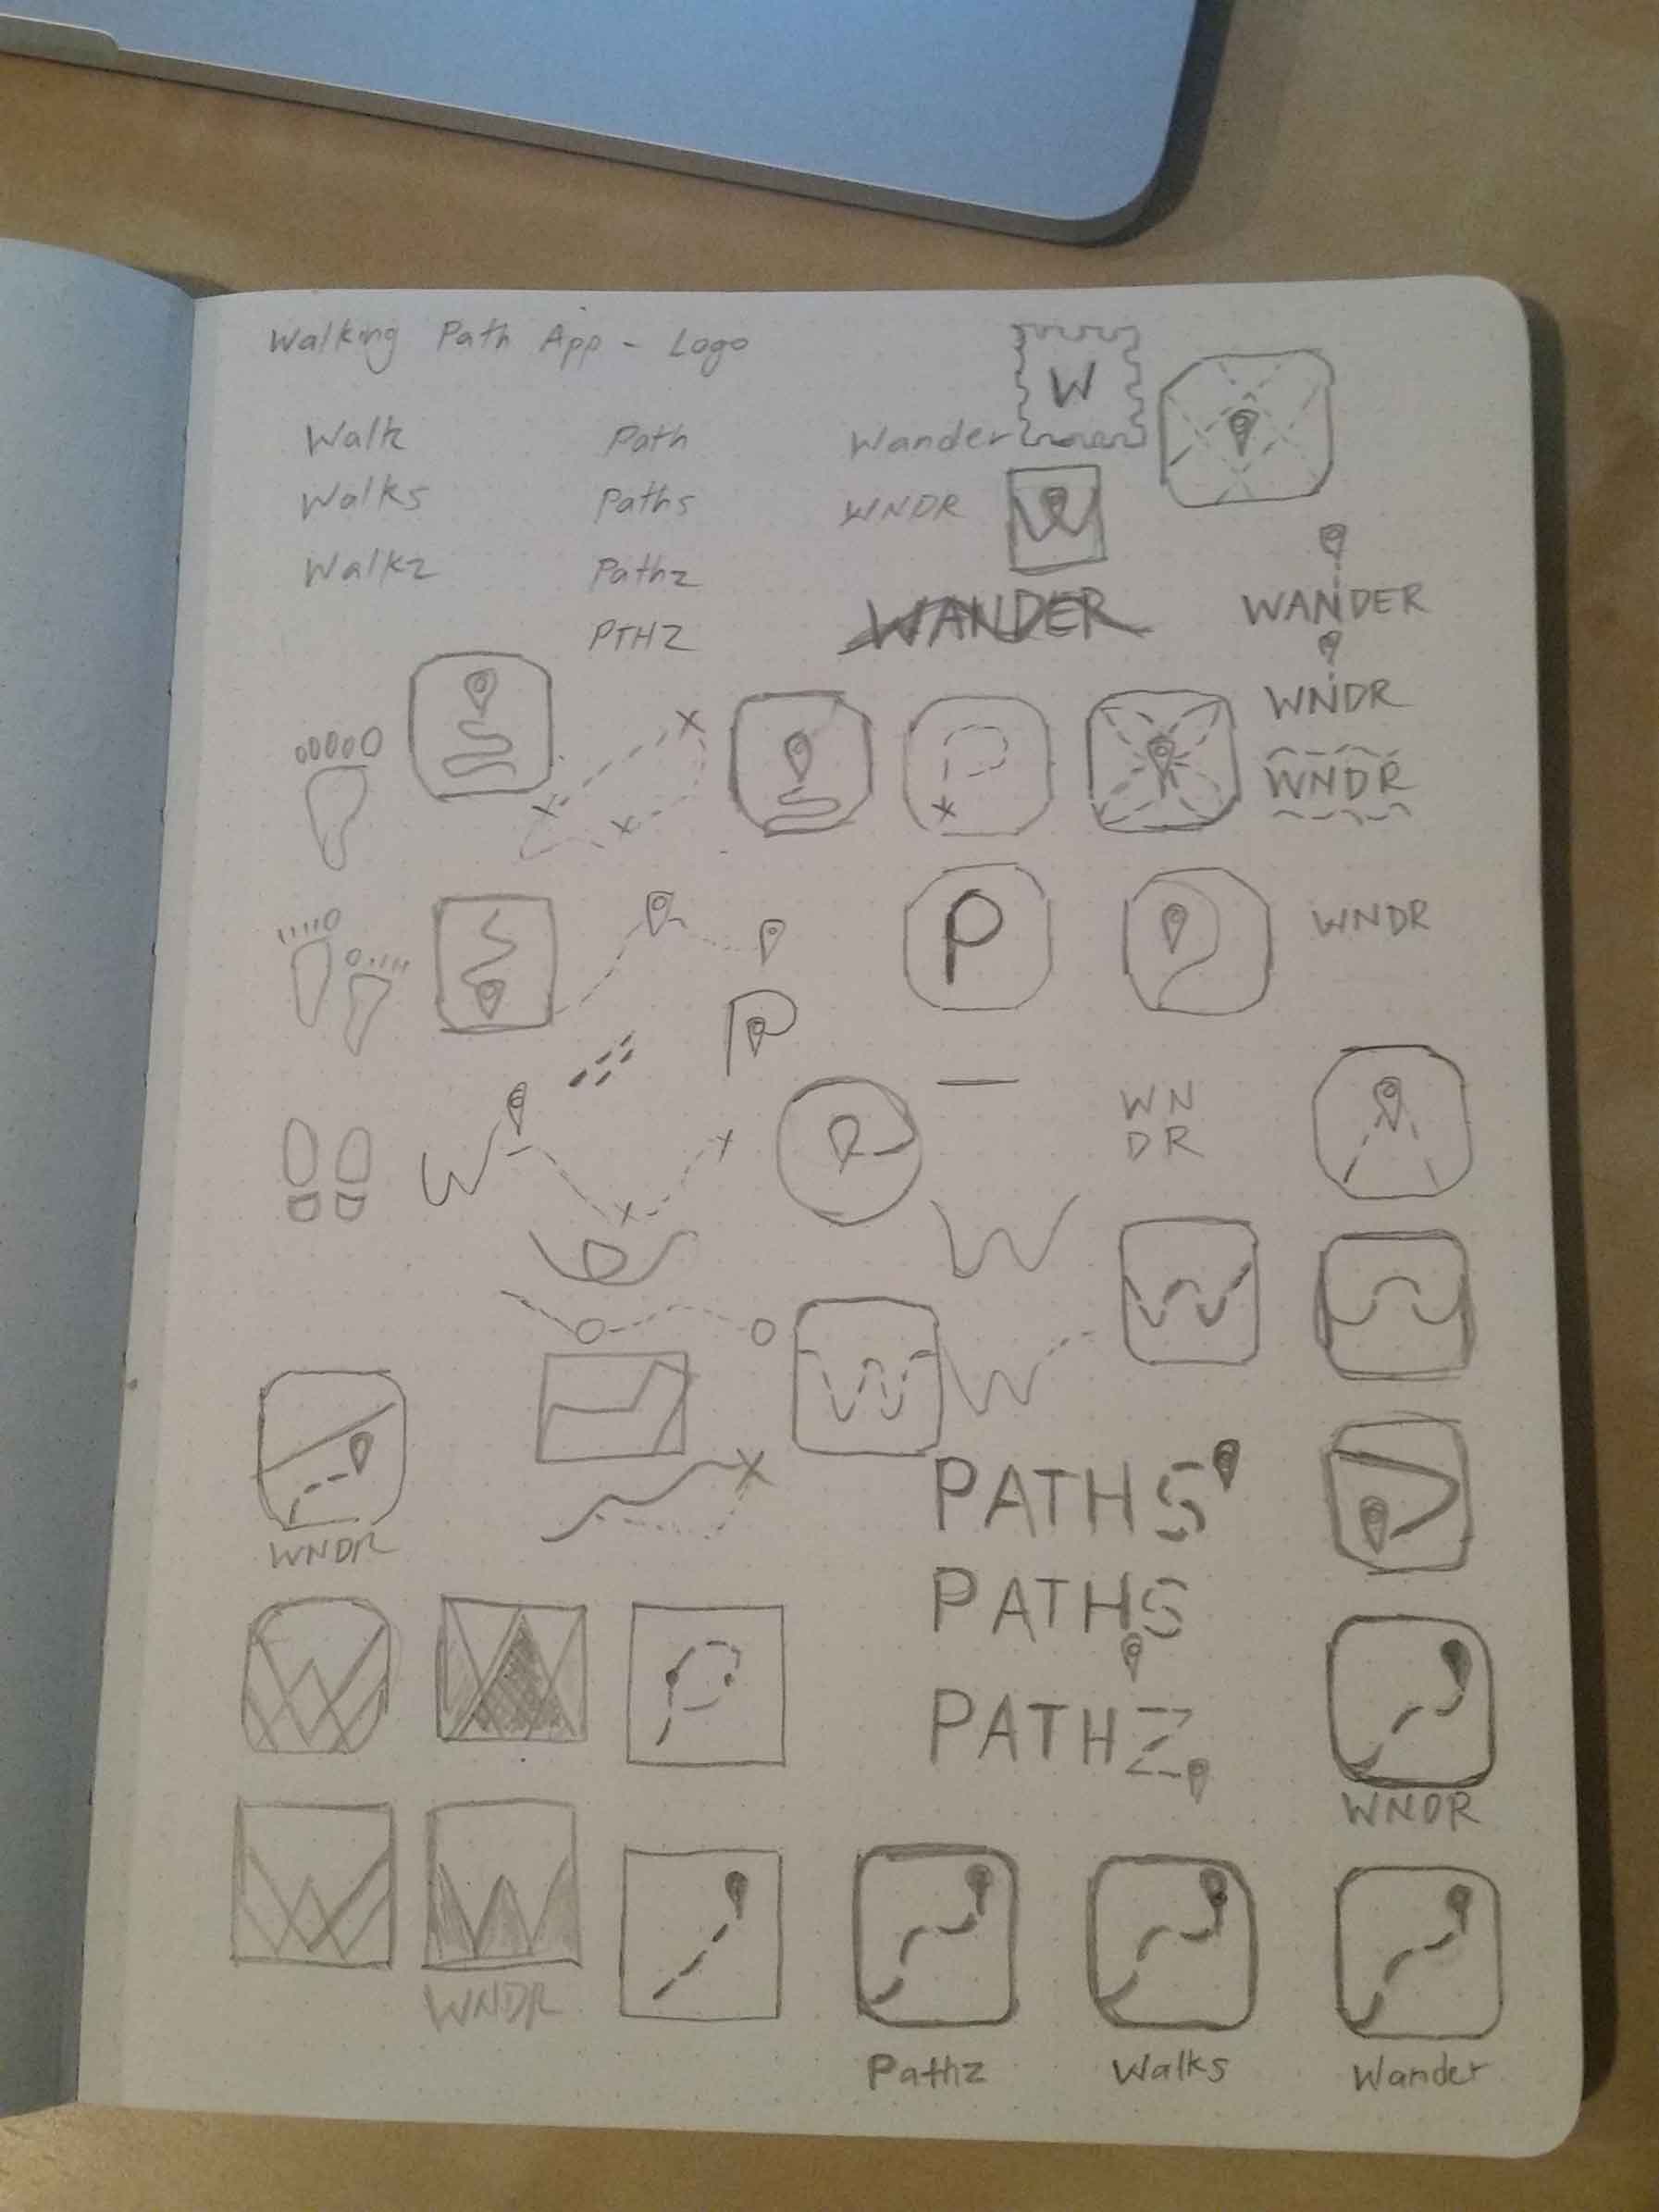 Walking Path App - Logo
W
Walk Path Wander
Walks Paths WNDR
W
Walkz Pathz
WANDER WANDER
PTHZ
WNDR
P
WNDR
P WNDR
P
W
WN
DR
W
W
W W
PATHS
WNDR
PATHS
P
PATHZ
WNDR
WNDR
Pathz Walks Wander